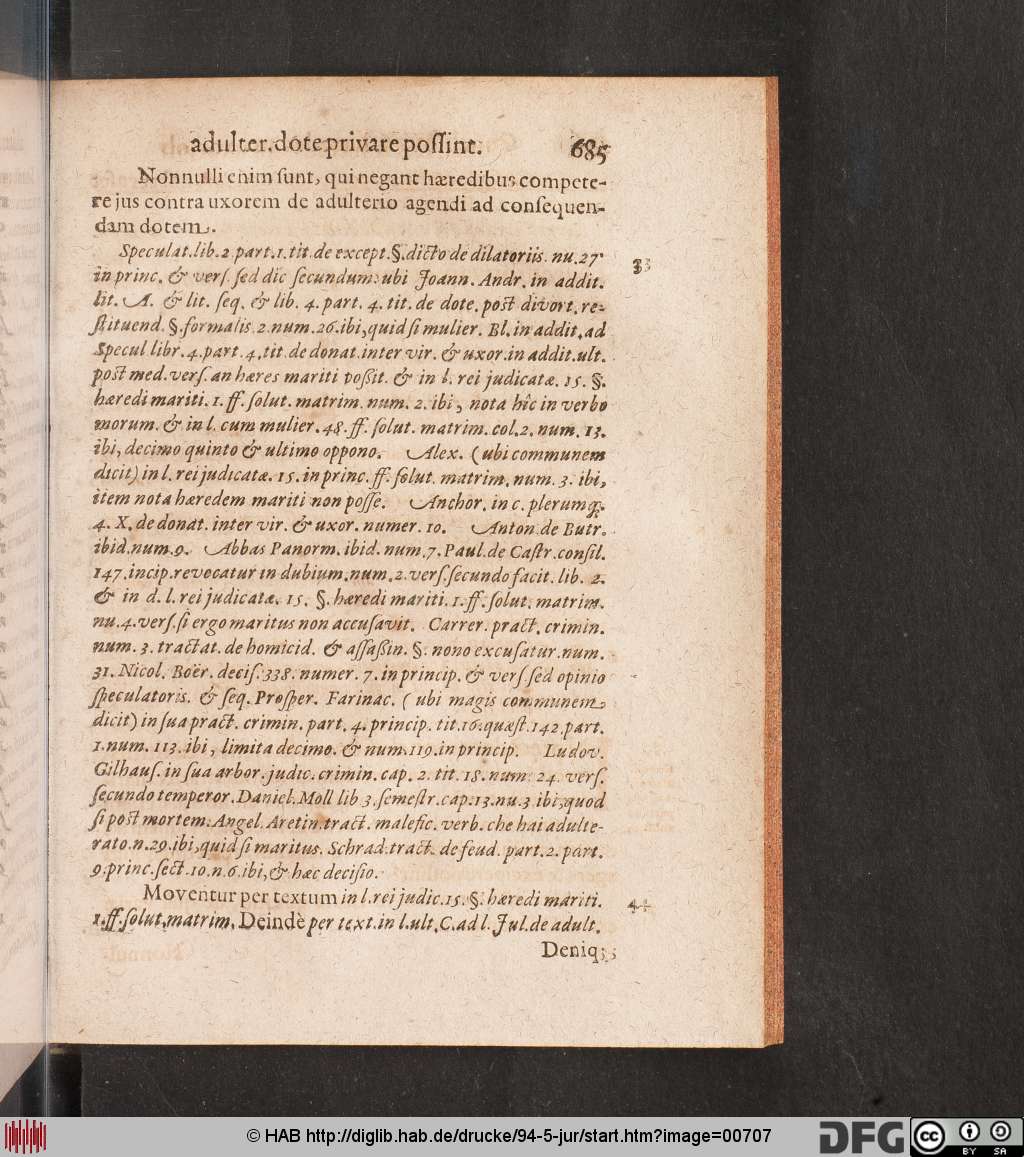 adulter. dote privare poſſint. 685
Nonnulli enim ſunt, qui negant hæredibus compete-
re jus contra uxorem de adulterio agendi ad conſequen-
dam dotem.
Speculat. lib. 2. part. 1. tit. de except. §. dicto de dilatoriis. nu. 27. 33
in princ. & verſ. ſed dic ſecundum: ubi Joann. Andr. in addit.
lit. A. & lit. ſeq. & lib. 4. part. 4. tit. de dote. post divort. re-
ſtituend. §. formalis. 2. num. 26. ibi, quid ſi mulier. Bl. in addit. ad
Specul libr. 4. part. 4. tit. de donat. inter vir. & uxor. in addit. ult.
post med. verſ. an hæres mariti poßit. & in l. rei judicatæ. 15. §.
hæredi mariti. 1. ff. ſolut. matrim. num. 2. ibi, nota hîc in verbo
morum. & in l. cum mulier. 48. ff. ſolut. matrim. col. 2. num. 13.
ibi, decimo quinto & ultimo oppono. Alex. (ubi communem
dicit) in l. rei judicatæ. 15. in princ. ff. ſolut. matrim. num. 3. ibi,
item nota hæredem mariti non poſſe. Anchor. in c. plerumq;.
4. X. de donat. inter vir. & uxor. numer. 10. Anton. de Butr.
ibid. num. 9. Abbas Panorm. ibid. num. 7. Paul. de Caſtr. conſil.
147. incip. revocatur in dubium. num. 2. verſ. ſecundo facit. lib. 2.
& in d. l. rei judicatæ. 15. §. hæredi mariti. 1. ff. ſolut. matrim.
nu. 4. verſ. ſi ergo maritus non accuſavit. Carrer. pract. crimin.
num. 3. tractat. de homicid. & aſſaßin. §. nono excuſatur. num.
31. Nicol. Boër. deciſ. 338. numer. 7. in princip. & verſ ſed opinio
ſpeculatoris. & ſeq. Proſper. Farinac. (ubi magis communem
dicit) in ſua pract. crimin. part. 4. princip. tit. 16. quæſt. 142. part.
1. num. 113. ibi, limita decimo. & num. 119. in princip. Ludov.
Gilhauſ. in ſua arbor. judic. crimin. cap. 2. tit. 18. num. 24. verſ.
ſecundo temperor. Daniel. Moll lib 3. ſemeſtr. cap. 13. nu. 3 ibi, quod
ſi post mortem. Angel. Aretin. tract. malefic. verb. che hai adulte-
rato. n. 29. ibi, quid ſi maritus. Schrad. tract. de feud. part. 2. part.
9. princ. ſect. 10. n. 6. ibi, & hæc deciſio.
Moventur per textum in l. rei judic. 15. §. hæredi mariti. 44
1. ff. ſolut. matrim. Deindè per text. in l. ult. C. ad l. Jul. de adult.
Deniq;
© HAB http://diglib.hab.de/drucke/94-5-jur/start.htm?image=00707
DFG
cc BY SA